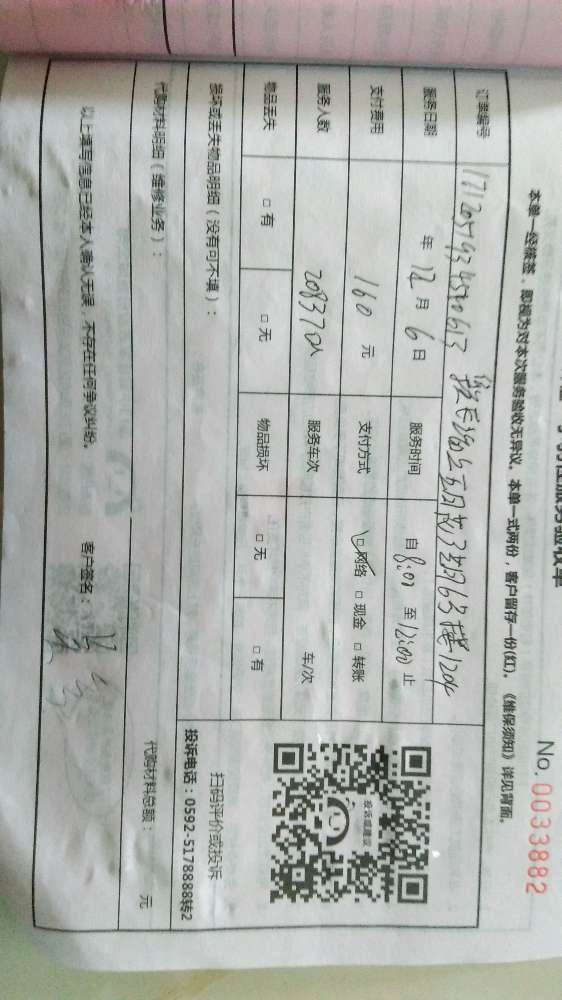 服务验收单
No. 0033882
本单一经签签，即视为对本次服务验收无异议。本单一式两份，客户留存一份(红)。《维保须知》详见背面。
订单编号
服务日期 年 12 月 6 日 服务时间 自 8:00 至 12:00 止
支付费用 160 元 支付方式 □网络 □现金 □转账
服务人数 服务车次 车/次
物品丢失 □有 □无 物品损坏 □无 □有
损坏或丢失物品明细（没有可不填）：
投诉或建议
扫码评价或投诉
投诉电话：0592-5178888转2
代购材料明细（维修业务）： 代购材料总额： 元
以上填写信息已经本人确认无误，不存在任何争议纠纷。 客户签名：